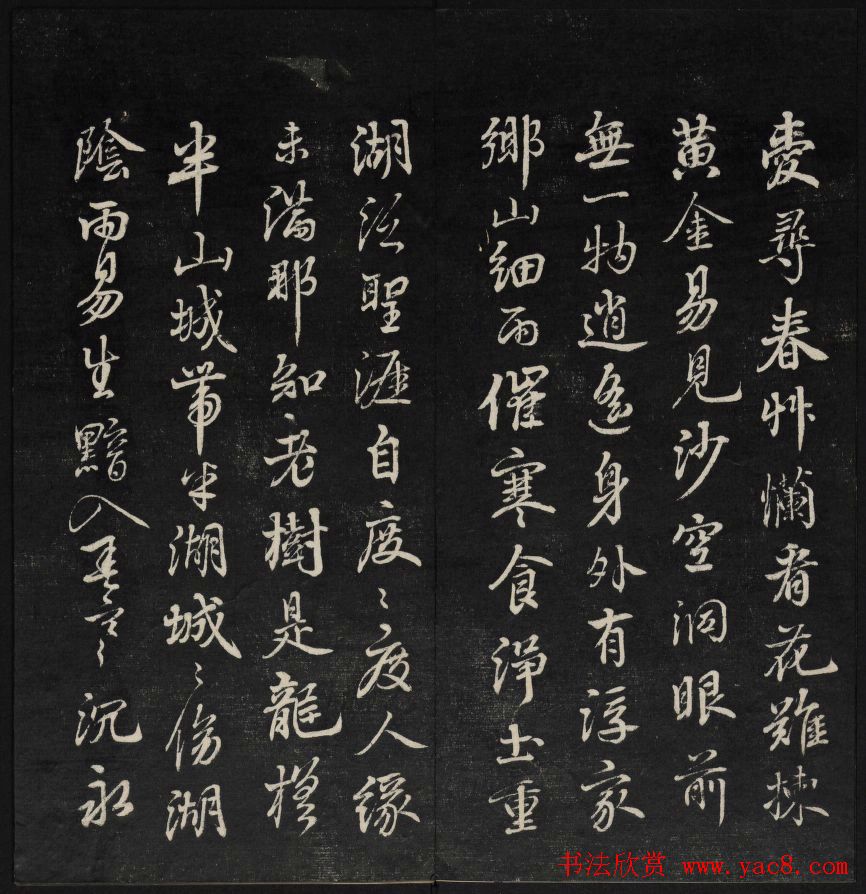 爱尋春艸懶看花難揀
黄金易見沙空洞眼前
無一物逍遥身外有浮家
鄉山細雨催寒食淨土重
湖泛聖涯自度〻度人緣
未滿那知老樹是龍槎
半山城帶半湖城〻傍湖
陰雨易生黯入〻沉永
书法欣赏 www.yac8.com